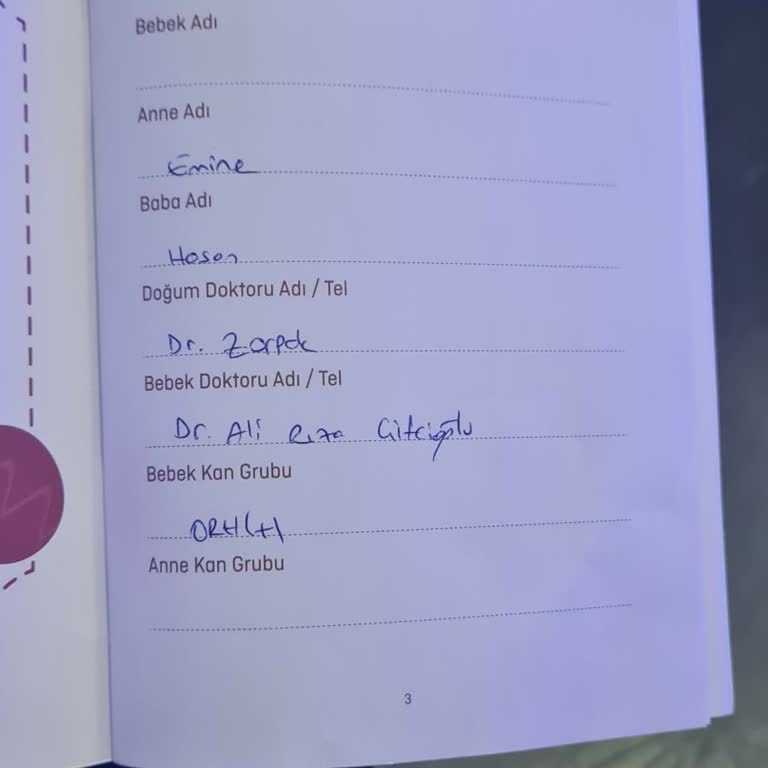 Bebek Adı
Anne Adı
Emine
Baba Adı
Hasan
Doğum Doktoru Adı / Tel
Dr.
Bebek Doktoru Adı / Tel
Dr. Ali Rıza
Bebek Kan Grubu
ORH(+)
Anne Kan Grubu
3